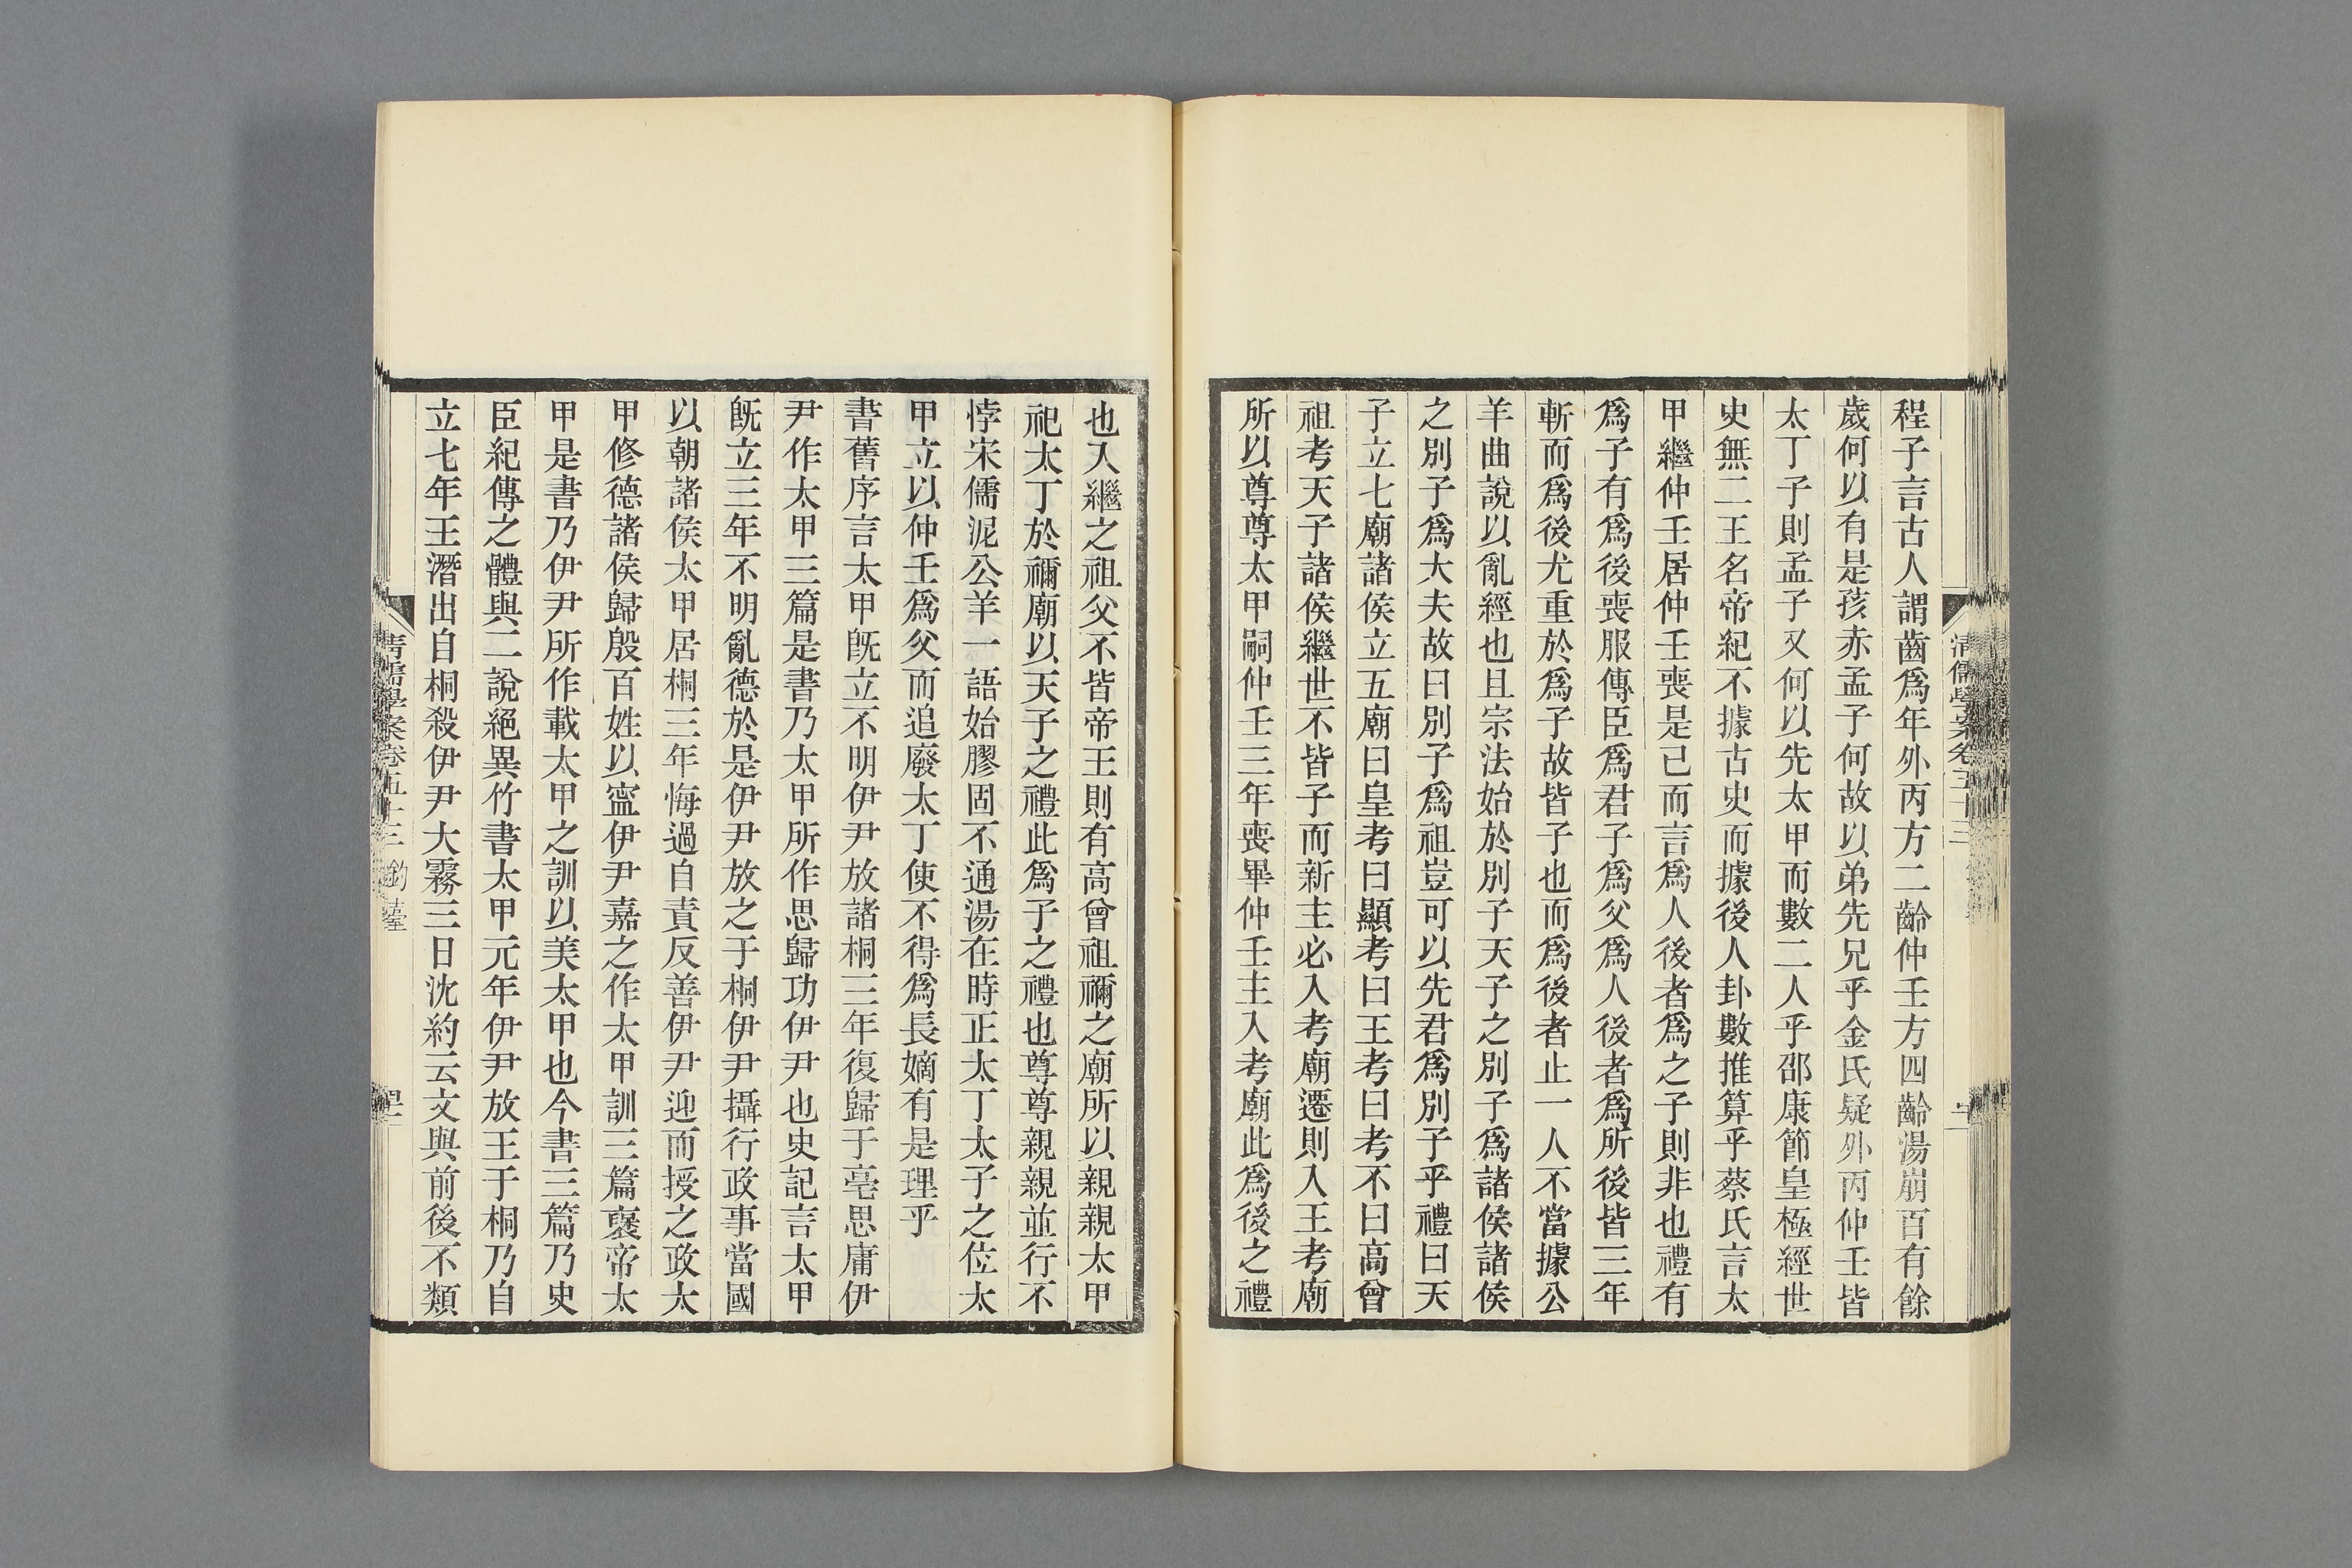 程子言古人謂齒爲年外丙方二齡仲壬方四齡湯崩百有餘
歲何以有是孩赤孟子何故以弟先兄乎金氏疑外丙仲壬皆
太丁子則孟子又何以先太甲而數二人乎邵康節皇極經世
史無二王名帝紀不據古史而據後人卦數推算乎蔡氏言太
甲繼仲壬居仲壬喪是已而言爲人後者爲之子則非也禮有
爲子有爲後喪服傳臣爲君子爲父爲人後者爲所後皆三年
斬而爲後尤重於爲子故皆子也而爲後者止一人不當據公
羊曲說以亂經也且宗法始於別子天子之別子爲諸侯諸侯
之別子爲大夫故曰別子爲祖豈可以先君爲別子乎禮曰天
子立七廟諸侯立五廟曰皇考曰顯考曰王考曰考不曰高曾
祖考天子諸侯繼世不皆子而新主必入考廟遷則入王考廟
所以尊尊太甲嗣仲壬三年喪畢仲壬主入考廟此爲後之禮
也入繼之祖父不皆帝王則有高曾祖禰之廟所以親親太甲
祀太丁於禰廟以天子之禮此爲子之禮也尊尊親親並行不
悖宋儒泥公羊一語始膠固不通湯在時正太丁太子之位太
甲立以仲壬爲父而追廢太丁使不得爲長嫡有是理乎
書舊序言太甲旣立不明伊尹放諸桐三年復歸于亳思庸伊
尹作太甲三篇是書乃太甲所作思歸功伊尹也史記言太甲
旣立三年不明亂德於是伊尹放之于桐伊尹攝行政事當國
以朝諸侯太甲居桐三年悔過自責反善伊尹迎而授之政太
甲修德諸侯歸殷百姓以寍伊尹嘉之作太甲訓三篇襃帝太
甲是書乃伊尹所作載太甲之訓以美太甲也今書三篇乃史
臣紀傳之體與二說絕異竹書太甲元年伊尹放王于桐乃自
立七年王潛出自桐殺伊尹大霧三日沈約云文與前後不類
清儒學案卷五十三
清儒學案卷五十三